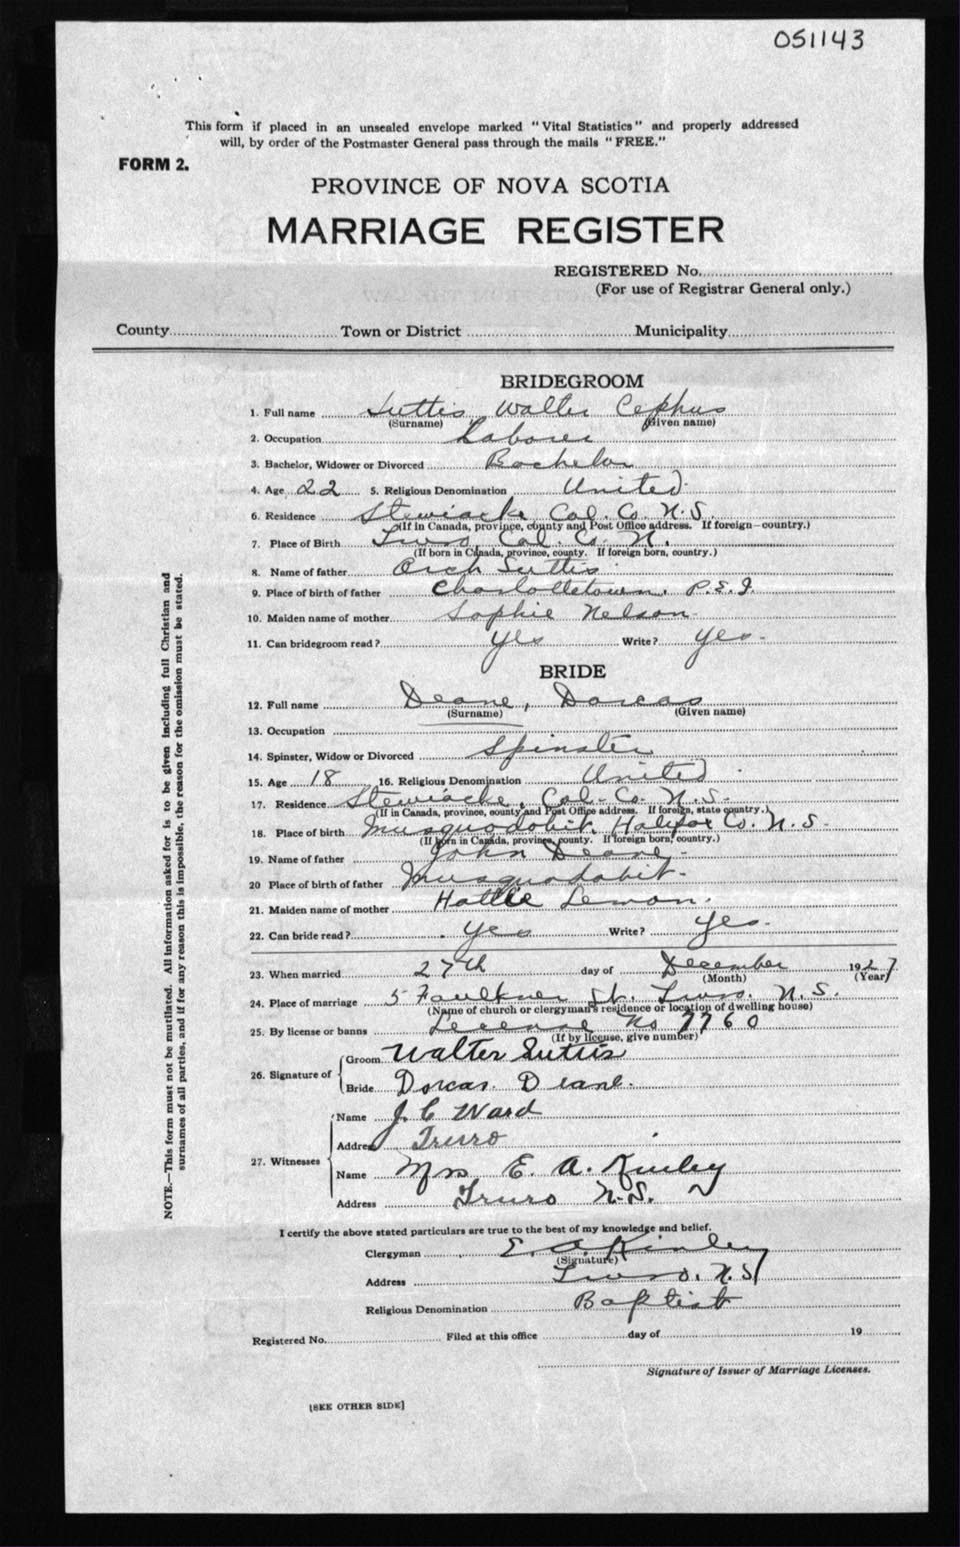 051143
This form if placed in an unsealed envelope marked "Vital Statistics" and properly addressed
will, by order of the Postmaster General pass through the mails "FREE."
FORM 2.
PROVINCE OF NOVA SCOTIA
MARRIAGE REGISTER
REGISTERED No.
(For use of Registrar General only.)
County Town or District Municipality
BRIDEGROOM
1. Full name Suttis Walter Cephus
(Surname) (Given name)
2. Occupation Laborer
3. Bachelor, Widower or Divorced Bachelor
4. Age 22 5. Religious Denomination United
6. Residence Stewiacke Col. Co. N.S.
(If in Canada, province, county and Post Office address. If foreign—country.)
7. Place of Birth Truro Col. Co. N.
(If born in Canada, province, county. If foreign born, country.)
8. Name of father Arch Suttis
9. Place of birth of father Charlottetown, P.E.I.
10. Maiden name of mother Sophie Nelson
11. Can bridegroom read? yes Write? yes.
BRIDE
12. Full name Deane, Dorcas
(Surname) (Given name)
13. Occupation
14. Spinster, Widow or Divorced Spinster
15. Age 18 16. Religious Denomination United
17. Residence Stewiacke, Col. Co. N.S.
(If in Canada, province, county and Post Office address. If foreign, state country.)
18. Place of birth Musquodobit, Halifax Co. N.S.
(If born in Canada, province, county. If foreign born, country.)
19. Name of father John Deane
20 Place of birth of father Musquodobit
21. Maiden name of mother Hattie Lemon.
22. Can bride read? yes Write? yes.
23. When married 27th day of December 1927
(Month) (Year)
24. Place of marriage 5 Faulkner St. Truro. N.S.
(Name of church or clergyman's residence or location of dwelling house)
25. By license or banns License No 7760
(If by license, give number)
26. Signature of
Groom Walter Suttis
Bride Dorcas Deane.
27. Witnesses
Name J. C Ward
Address Truro
Name Mrs E. A. Kinley
Address Truro N.S.
I certify the above stated particulars are true to the best of my knowledge and belief.
Clergyman E. A. Kinley
(Signature)
Address Truro. N.S
Religious Denomination Baptist
Registered No. Filed at this office day of 19
Signature of Issuer of Marriage Licenses.
[SEE OTHER SIDE]
NOTE.—This form must not be mutilated. All information asked for is to be given including full Christian and
surnames of all parties, and if for any reason this is impossible, the reason for the omission must be stated.